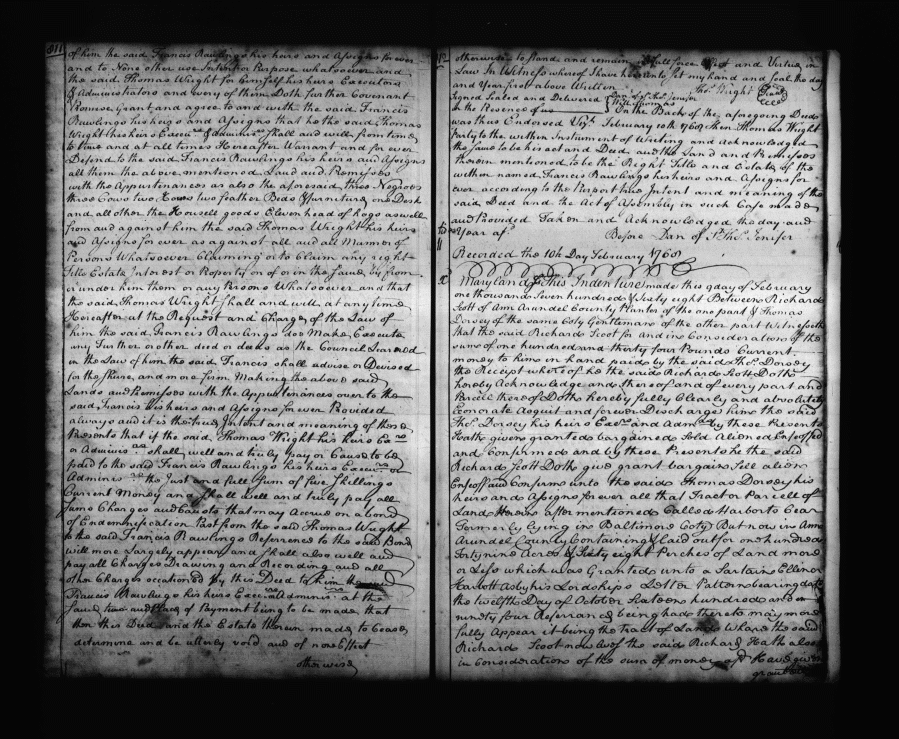 811
of him the said Francis Rawlings his heirs and Assigns for ever
and to None other use Intent or Purpose whatsoever and
the said Thomas Wright for himself his heirs Executors
& Administrators and every of them Doth further Covenant
Promise Grant and agree to and with the said Francis
Rawlings his heirs and Assigns that he the said Thomas
Wright his heirs Execrs & adminrs shall and will from time
to time and at all times Hereafter Warant and for ever
Defend to the said Francis Rawlings his heirs and Assigns
all them the above mentioned Land and Premisses
with the Appurtenances as also the aforesaid three Negroes
three Cows two Ewes two feather Beds & furniture one Desk
and all other the Housell goods Eleven head of hogs as well
from and against him the said Thomas Wright his heirs
and Assigns for ever as against all and all Manner of
Persons Whatsoever Claiming or to Claim any right
Title Estate Interest or Property on of or in the same by from
or under him them or any Persons Whatsoever and that
the said Thomas Wright shall and will at any time
Hereafter at the Request and Charge of the Law of
him the said Francis Rawlings doe Make Execute
any Further or other deed or deeds as the Council Learned
in the Law of him the said Francis shall advise or Devised
for the Shure and more firm Making the above said
Lands and Premisses with the Appurtenances over to the
said Francis his heirs and Assigns for ever Provided
always and it is the true Intent and meaning of these
Presents that if the said Thomas Wright his heirs Exrs
or Adminrs shall well and truly pay or Cause to be
paid to the said Francis Rawlings his heirs Execrs or
Adminisrs the Just and full sum of five Shillings
Current Money and shall well and truly pay all
Same Charges and Costs that may Accrue on a bond
of Endemnification Past from the said Thomas Wright
to the said Francis Rawlings Referrence to the said Bond
will more Largely appear and shall also well and
pay all Charges Drawing and Recording and all
other Charges occationed by this Deed to him the
Francis Rawlings his heirs Execrs Adminisrs at the
Same time and Place of Payment being to be made that
then this Deed and the Estate therein made to Cease
determine and be utterly void and of none Effect
otherwise
otherwise to Stand and remain in full force Effect and Virtue in
Law In Witness whereof I have hereunto set my hand and seal the day
and Year first above Written Thos Wright Seal
Signed Sealed and Delivered
in the Presence of us On the Back of the aforegoing Deed
was thus Endorsed Vizt February 10th 1768 Then Thomas Wright
party to the within Instrument of Writing and Acknowledged
the same to be his act and Deed and the Land and Premisses
therein mentioned to be the Right Title and Estate of the
within named Francis Rawlings his heirs and Assigns for
ever according to the Purport true Intent and meaning of the
said Deed and the Act of Assembly in such Case made
and Provided Taken and Acknowledged the day and
Year afd Before Dan of St Thos Jenifer
Recorded the 10th Day February 1768
Maryland ss This Indenture made this 9 day of February
one thousand Seven hundred & Sixty eight Between Richard
Scott of Ann Arundel County Planter of the one part & Thomas
Dorsey of the same Coty Gentleman of the other part Witnesseth
that the said Richard Scoot for and in Considerations of the
sum of one hundred and thirty four Pounds Current
money to him in hand paid by the said Thos Dorsey
the Receipt whereof he the said Richard Scott Doth
hereby Acknowledge and thereof and of every part and
Parcel thereof Doth hereby fully Clearly and absolutely
Exonorate Acquit and forever Discharge him the said
Thos Dorsey his heirs Exrs and Admrs by these Presents
Hath given granted bargained Sold Aliened Enfeoffed
and Confirmed and by these Presents he the said
Richard Scott Doth give grant bargain Sell alien
Enfeoff and Confirm unto the said Thomas Dorsey his
heirs and Assigns for ever all that Tract or Parcell of
Land Herein after mentioned Called Harborts Care
Formerly lying in Baltimore Coty But now in Ann
Arundel County Containing & laid out for one hundred
Forty nine Acres & Sixty eight Perches of Land more
or Less which was Granted unto a Sartain Ellinor
Harbott as by his Lordships Letter Pattern bearing date
the twelfth Day of October Sixteen hundred and
ninety four Referrance being had thereto may more
fully Appear it being the tract of Land Whare the said
Richard Scoot now the said Richard Hath also
in Considerations of the sum of money afd Have given
granted